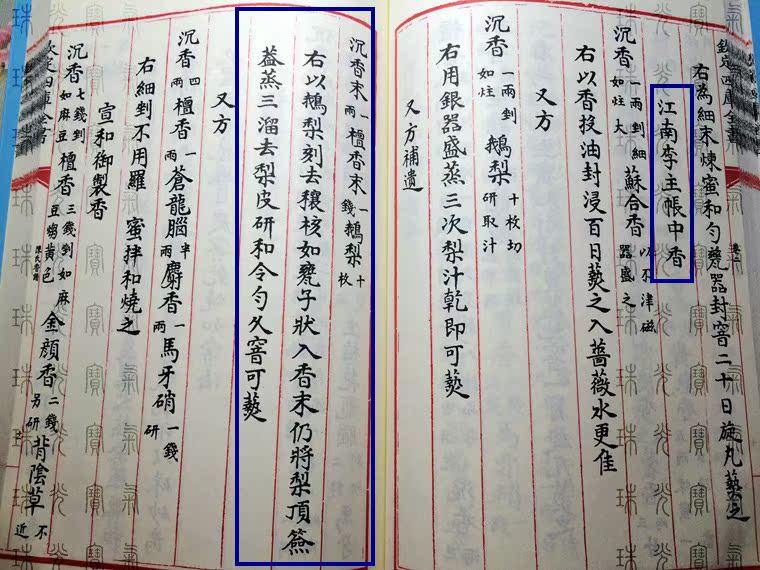 欽定四庫全書
右為細末煉蜜和勻甆器封窨二十日旋丸爇之
江南李主帳中香
沉香一兩剉細如炷大 蘇合香以不津磁器盛之
右以香投油封浸百日爇之入薔薇水更佳
又方
沉香一兩剉如炷 鵝梨十枚切研取汁
右用銀器盛蒸三次梨汁乾即可爇
又方補遺
沉香末一兩 檀香末一錢 鵝梨十枚
右以鵝梨刻去穰核如甕子狀入香末仍將梨頂簽
葢蒸三溜去梨皮研和令勻久窨可爇
又方
沉香四兩 檀香一兩 蒼龍腦半兩 麝香一兩 馬牙硝一錢研
右細剉不用羅 蜜拌和燒之
宣和御製香
沉香七錢剉如麻豆 檀香三錢剉如麻豆煼黃色 金顏香二錢另研 背陰草不近
欽定四庫全書
陳氏香譜
珠光寶氣